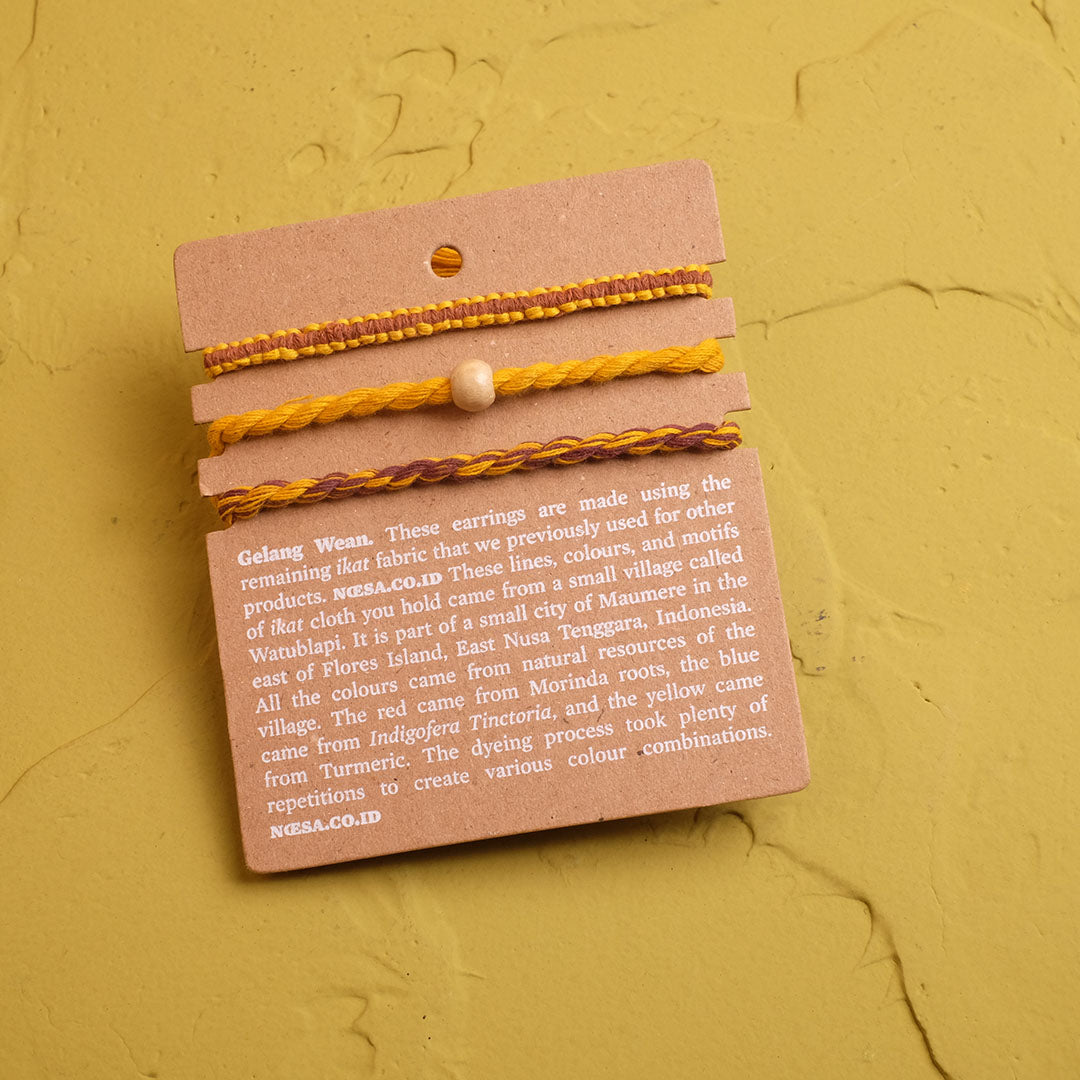 Gelang Wean. These earrings are made using the
remaining ikat fabric that we previously used for other
products. NŒSA.CO.ID These lines, colours, and motifs
of ikat cloth you hold came from a small village called
Watublapi. It is part of a small city of Maumere in the
east of Flores Island, East Nusa Tenggara, Indonesia.
All the colours came from natural resources of the
village. The red came from Morinda roots, the blue
came from Indigofera Tinctoria, and the yellow came
from Turmeric. The dyeing process took plenty of
repetitions to create various colour combinations.
NŒSA.CO.ID